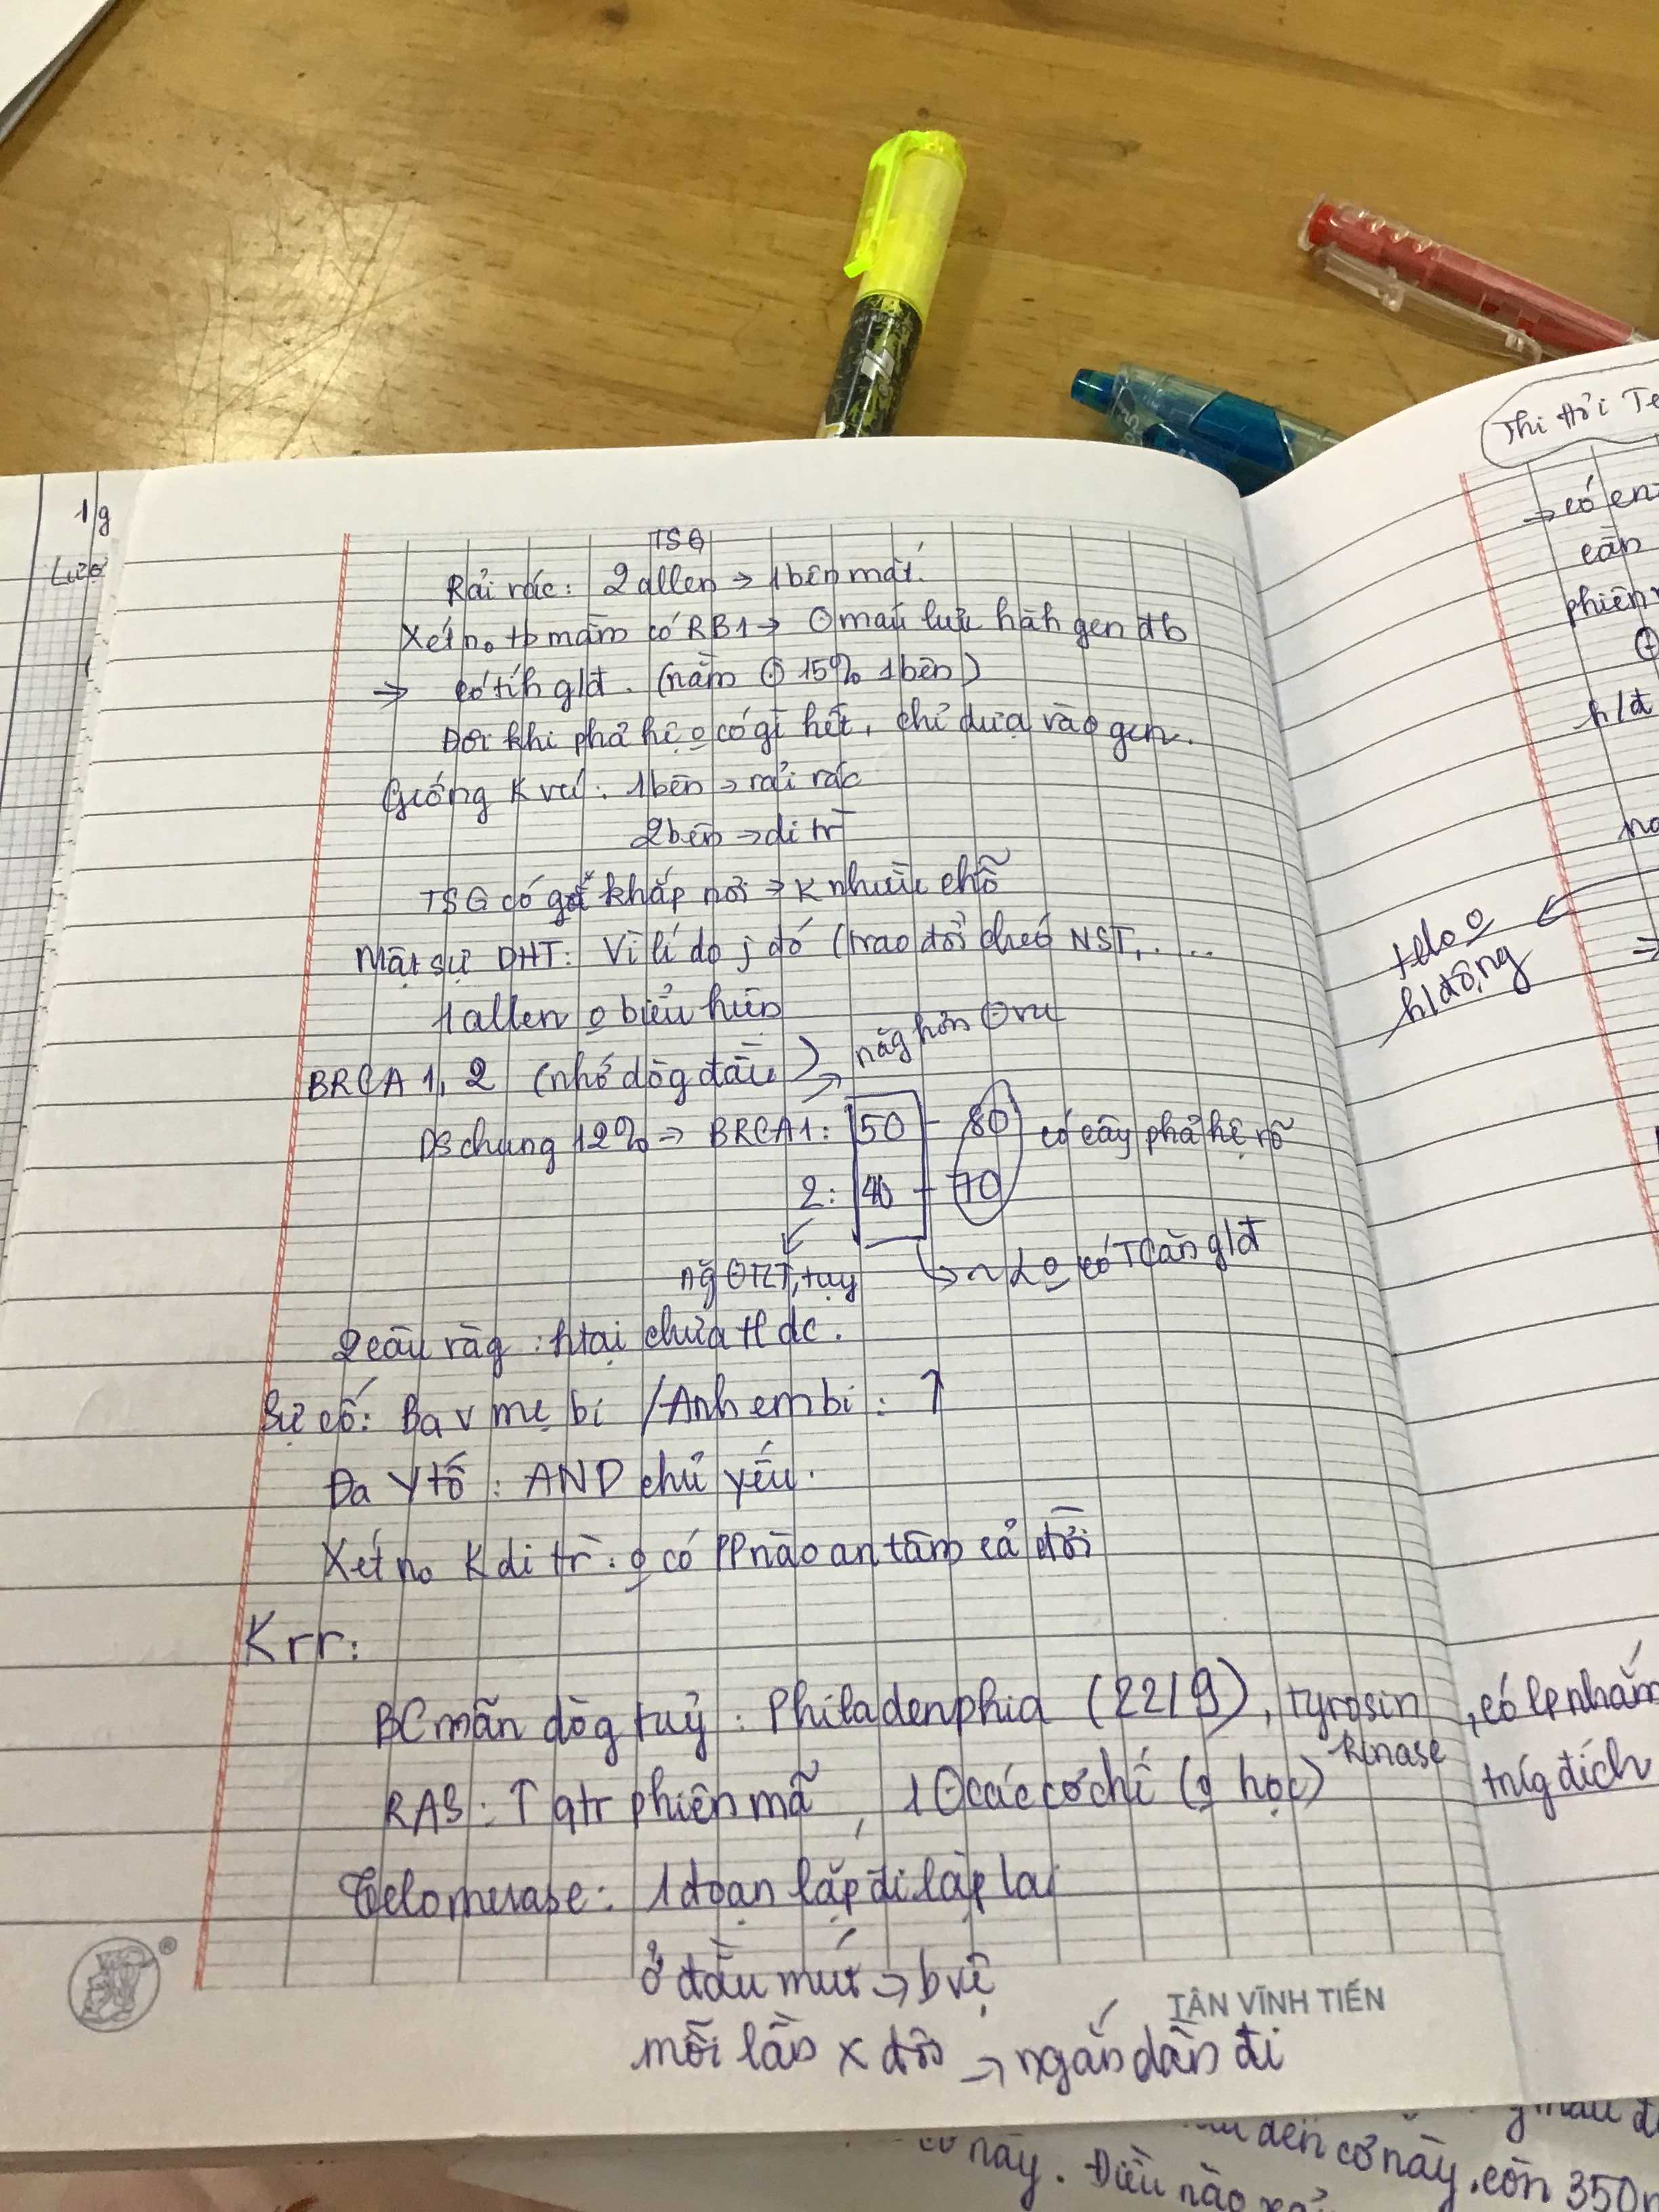 1/g
TSG
Rải rác: 2 allen → 1 bên mắt.
Xét no tb mầm có RB1 → ⊖ máu lưu hàh gen đb
⇒ có tíh g/đ. (nằm ⊕ 15% 1 bên)
Đôi khi phả hệ o có gì hết, chỉ dựa vào gen.
Giống K vú: 1 bên → rải rác
2 bên → di tr
TSG có gđ khắp nơi → K nhiều chỗ
Mất sự DHT: Vì lí do j đó (trao đổi chéo NST, ....
1 allen o biểu hiện
BRCA 1, 2 (nhớ dòg đầu) → nặg hơn ⊖ vú
DS chung 12% → BRCA1: 50 - 80 có cây phả hệ rõ
2: 40 - 70
ng ⊖ TLT, tụy
↳ ~ o có TCăn g/đ
2 câu ràg: htại chưa tl dc.
Sự cố: Ba v mẹ bị / Anh em bị: ↑
Đa y tố: AND chủ yếu.
Xét no K di tr: o có PP nào an tâm cả đời
K rr:
BC mãn dòg tuỷ: Philadenphia (22/9), tyrosin kinase, có lp nhắm trúg đích
RAS: ↑ qtr phiên mã, 1 ⊖ các cơ chế (o học)
Telomerase: 1 đoạn lặp đi lặp lại
ở đầu mút → b vệ
mỗi lần x đôi → ngắn dần đi
TÂN VĨNH TIẾN
®
Thi hỏi Te
→ có en
cần
phiên
⊕
h/đ
telo o
h/động
⇒
có này. Điều nào
đến cơ này, còn 350